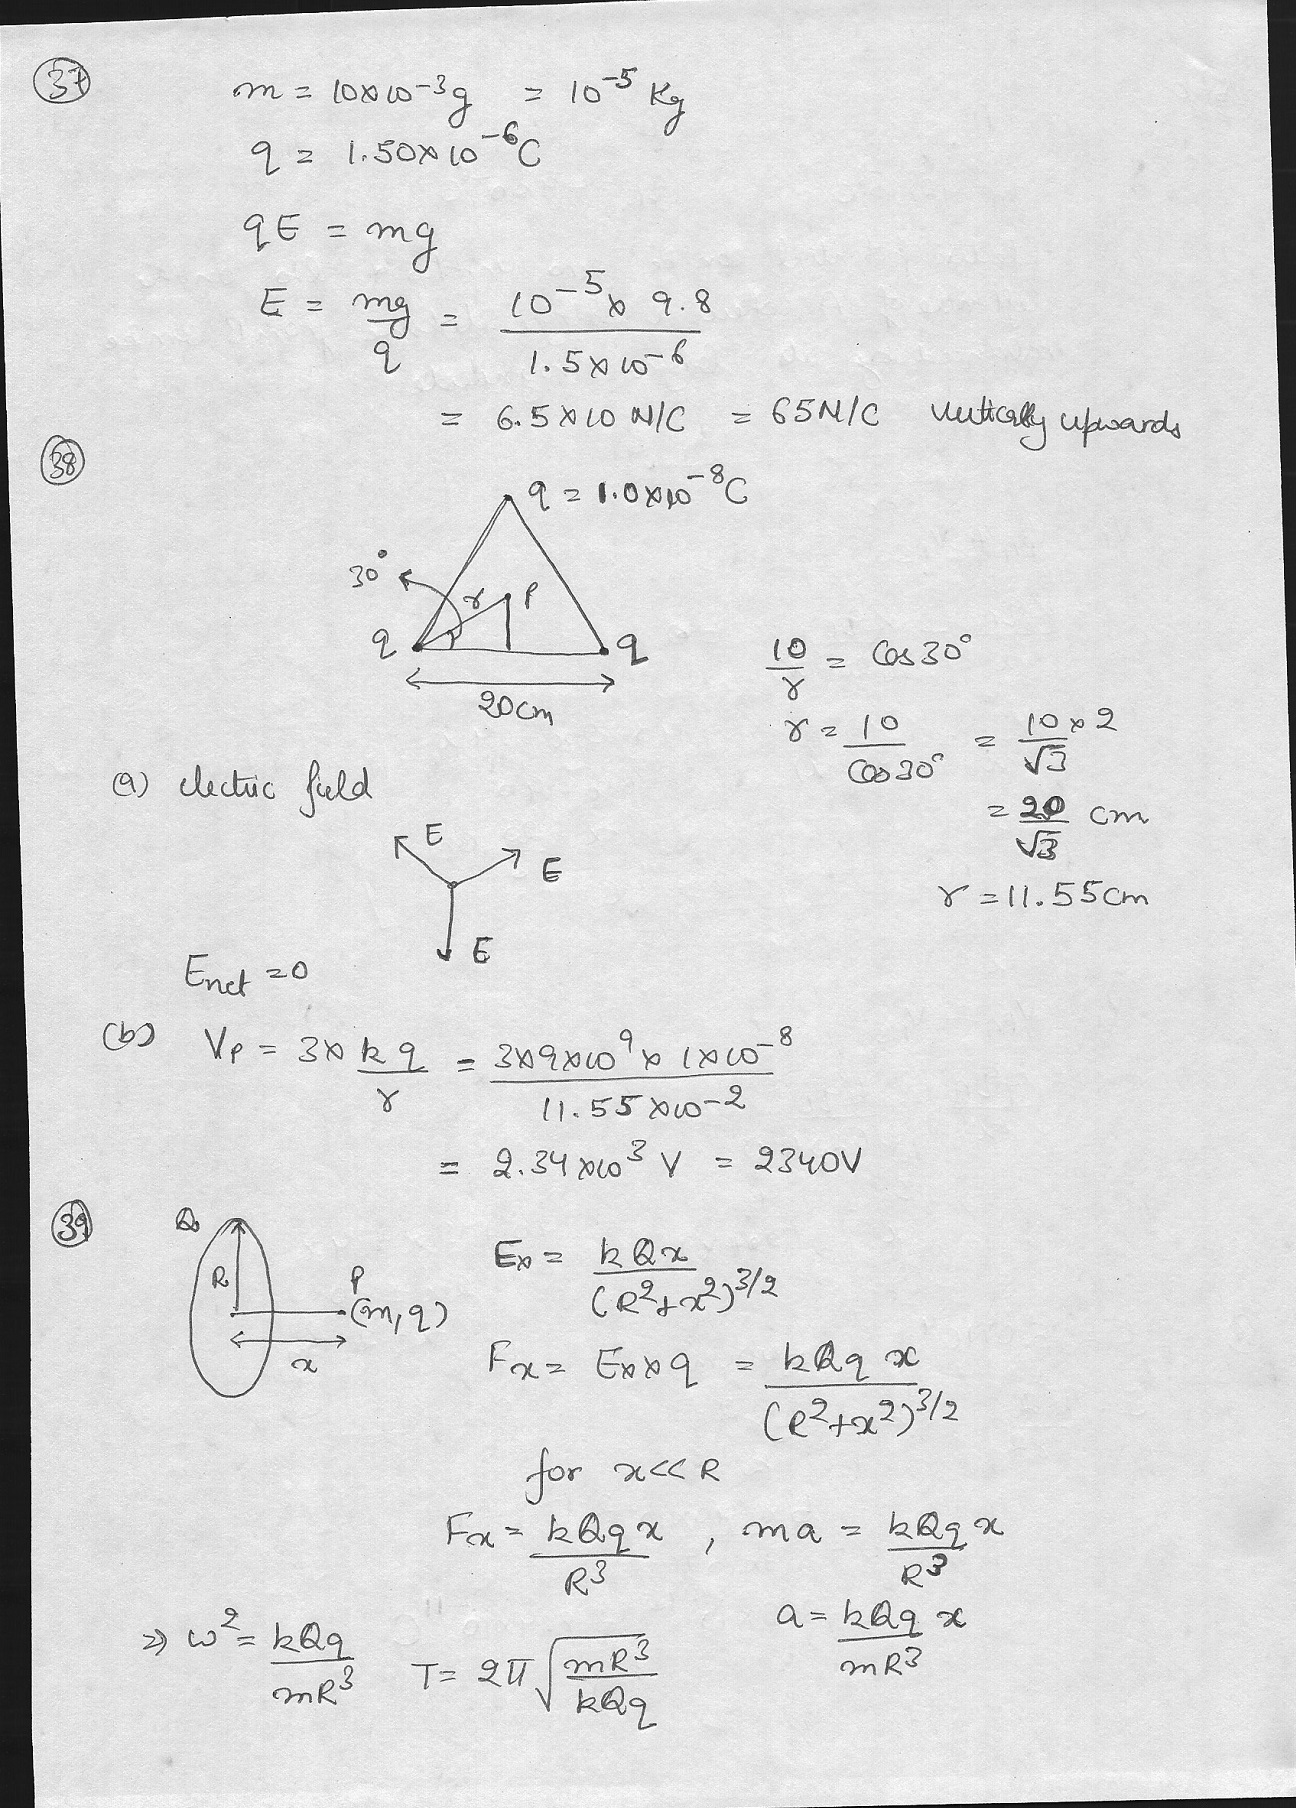 37
m = 10×10⁻³g = 10⁻⁵ Kg
q = 1.50×10⁻⁶C
qE = mg
E = mg/q = 10⁻⁵ × 9.8 / 1.5×10⁻⁶
= 6.5×10 N/C = 65N/C vertically upwards
38
q = 1.0×10⁻⁸C
30°
r P
q q
20cm
10/r = Cos30°
r = 10/Cos30° = 10×2/√3
= 20/√3 cm
r = 11.55cm
(a) electric field
E
E
E
Enet = 0
(b) Vp = 3× kq/r = 3×9×10⁹× 1×10⁻⁸ / 11.55×10⁻²
= 2.34×10³ V = 2340V
39
Q
R P
(m,q)
x
Ex = kQx/(R²+x²)^3/2
Fx = Ex×q = kQq x/(R²+x²)^3/2
for x<<R
Fx = kQq x/R³ , ma = kQq x/R³
a = kQq x/mR³
⇒ ω² = kQq/mR³ T = 2π √(mR³/kQq)